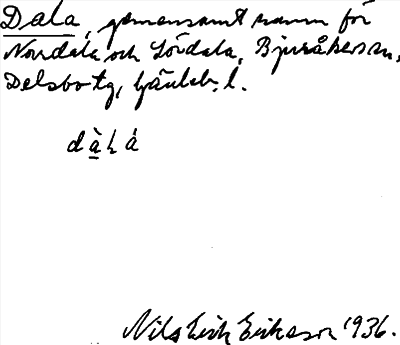 Dala, gemensamt namn för
Norrdala och Sördala, Bjuråkers sn,
Delsbo tg, Gävleb. l.
Nils Erik Erikson 1936.